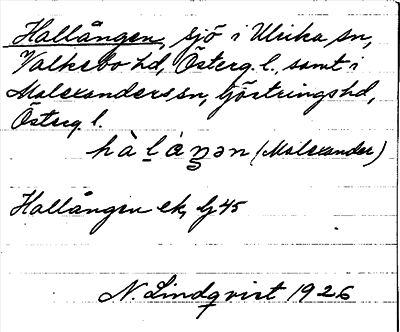 Hallången, sjö i Ulrika sn,
Valkebo hd, Österg. l., samt i
Malexanders sn, Göstrings hd,
Österg. l.
(Malexander)
Hallången ek, bj 45
N. Lindqvist 1926